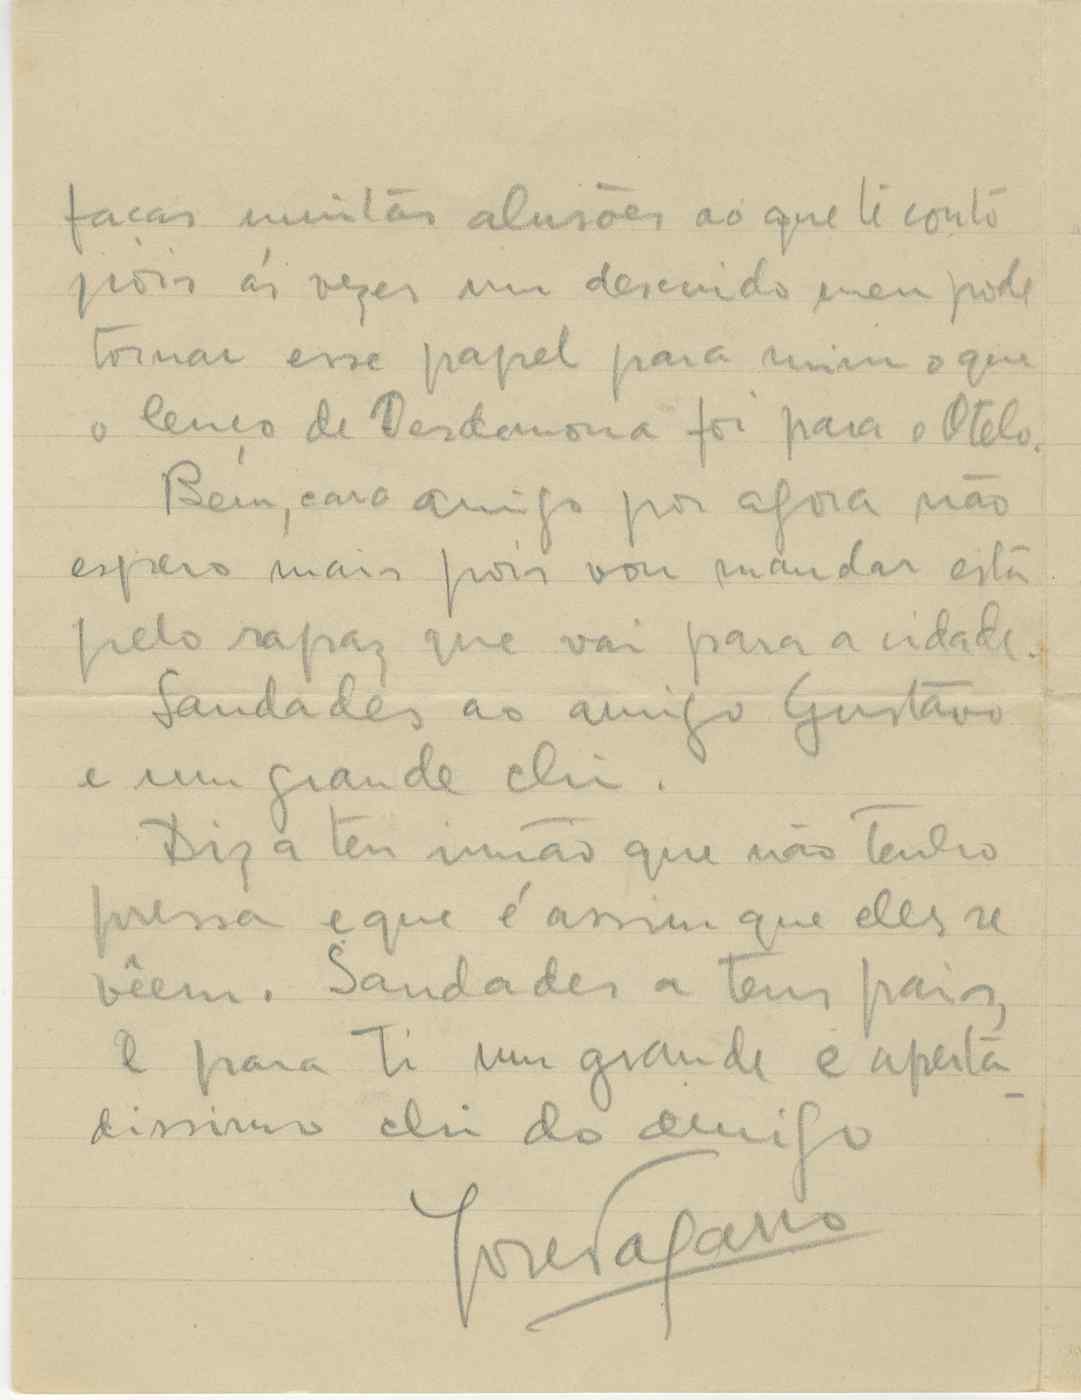 facas muitas alusões ao que te conto
pois ás vezes um descuido meu pode
tornar esse papel para mim o que
o lenço de Desdemona foi para o Otelo.
Bem, caro amigo por agora não
espero mais pois vou mandar esta
pelo rapaz que vai para a cidade.
Saudades ao amigo Gustavo
e um grande chi.
Diz a teu irmão que não tenho
pressa e que é assim que eles se
vêem. Saudades a teus pais,
e para ti um grande e aperta-
dissimo chi do amigo